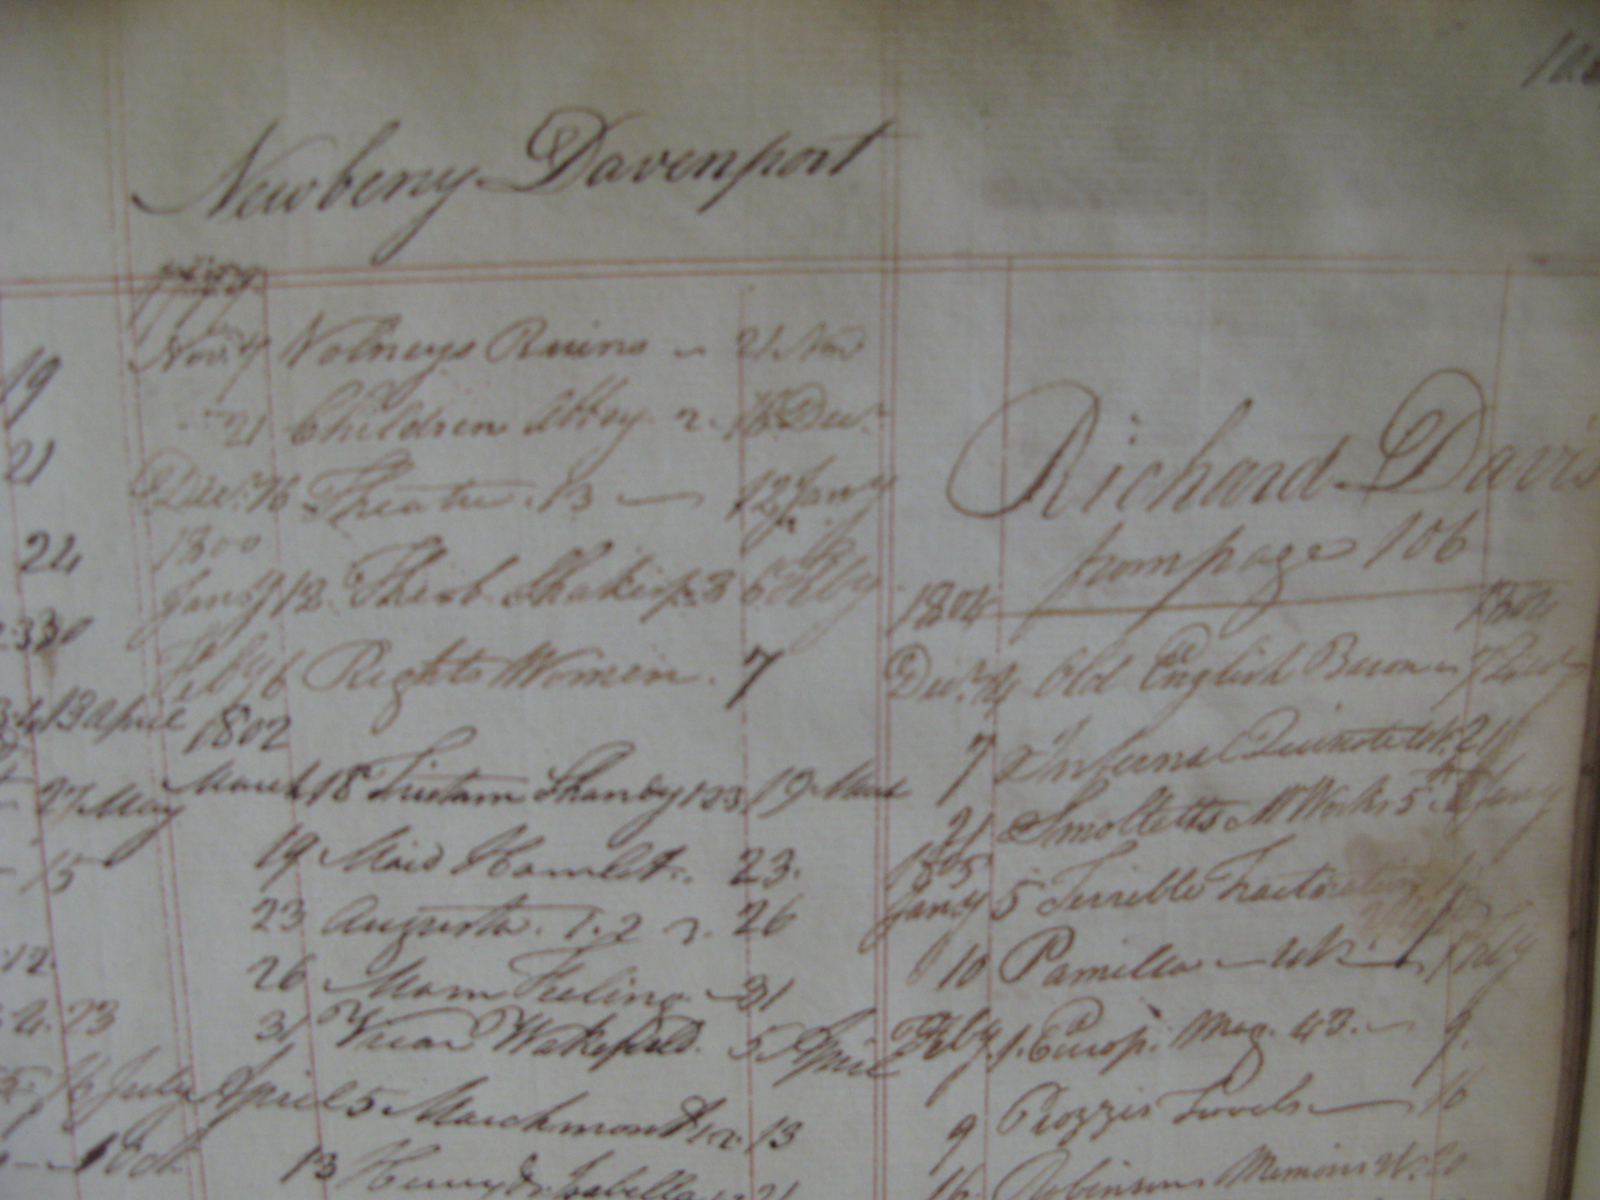 Newberry Davenport
1799
Nov. 7 Volneys Ruins - 21 Nov
21 Children Abbey 2. 16 Dec.
Dec. 16 Theatre. 13 - 12 Jany
1800
Jany 12 Theob. Shakesp. 3 6 Feby
Feby 6 Rights Women. 7
1802
March 18 Tristam Shandy 123 19 March
19 Maid Hamlet. 23.
23 Augusta. 1. 2 26
26 Man Feeling - 31
31 Vicar Wakefield. 5 April
April 5 Marchmont 1. 2. 13
13 Henry & Isabella 21
19
21
24
330
13 april
27 May
15
12.
23
16 July
1 Oct
Richard Davis
from page 106
1804 1804
Dec. Old English Baron
7 Infernal Quixote 21
21 Smolletts M Works 5 Jany
1805
Jany 5 Terrible Tractoration
10 Pamilla - Feby
Feby 1. Europ. Mag. 43. - 9.
9 Piozzis Travels - 16
16. Robinsons Memoirs 20